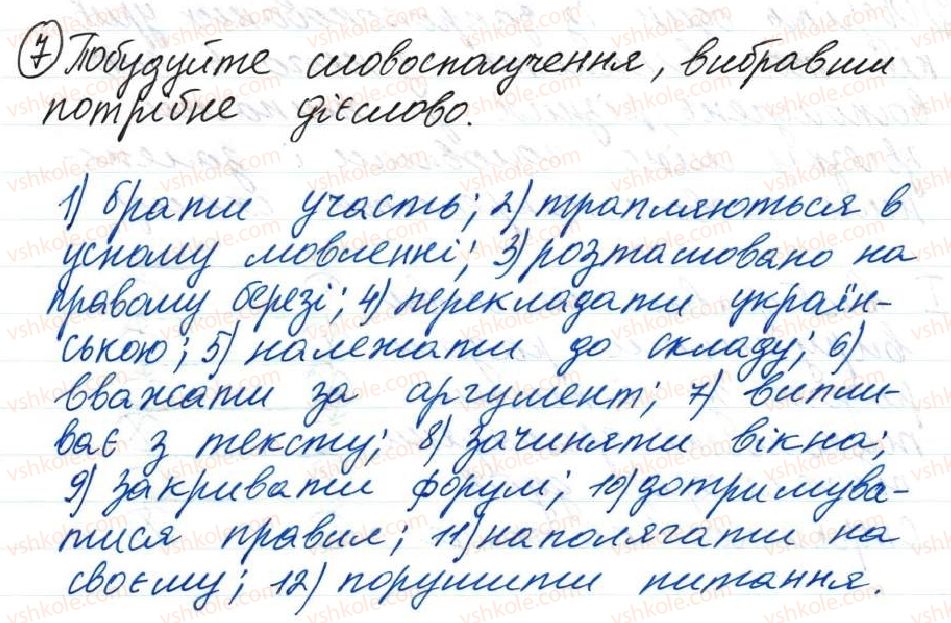 7 Побудуйте словосполучення, вибравши
потрібне дієслово.
1) брати участь; 2) трапляються в
усному мовленні; 3) розташовано на
правому березі; 4) перекладати україн-
ською; 5) належати до складу; 6)
вважати за аргумент; 7) виплив-
ває з тексту; 8) зачиняти вікна;
9) закривати форум; 10) дотримува-
тися правил; 11) наполягати на
своєму; 12) порушити питання.